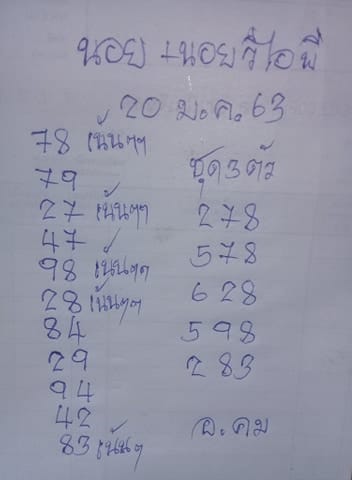 นอย + นอยวีไอพี
20 ม.ค. 63
78 เน้นๆๆ
79
27 เน้นๆๆ
47
98 เน้นๆๆ
28 เน้นๆๆ
84
29
94
42
83 เน้นๆ
ชุด 3 ตัว
278
578
628
598
283
อ. คม